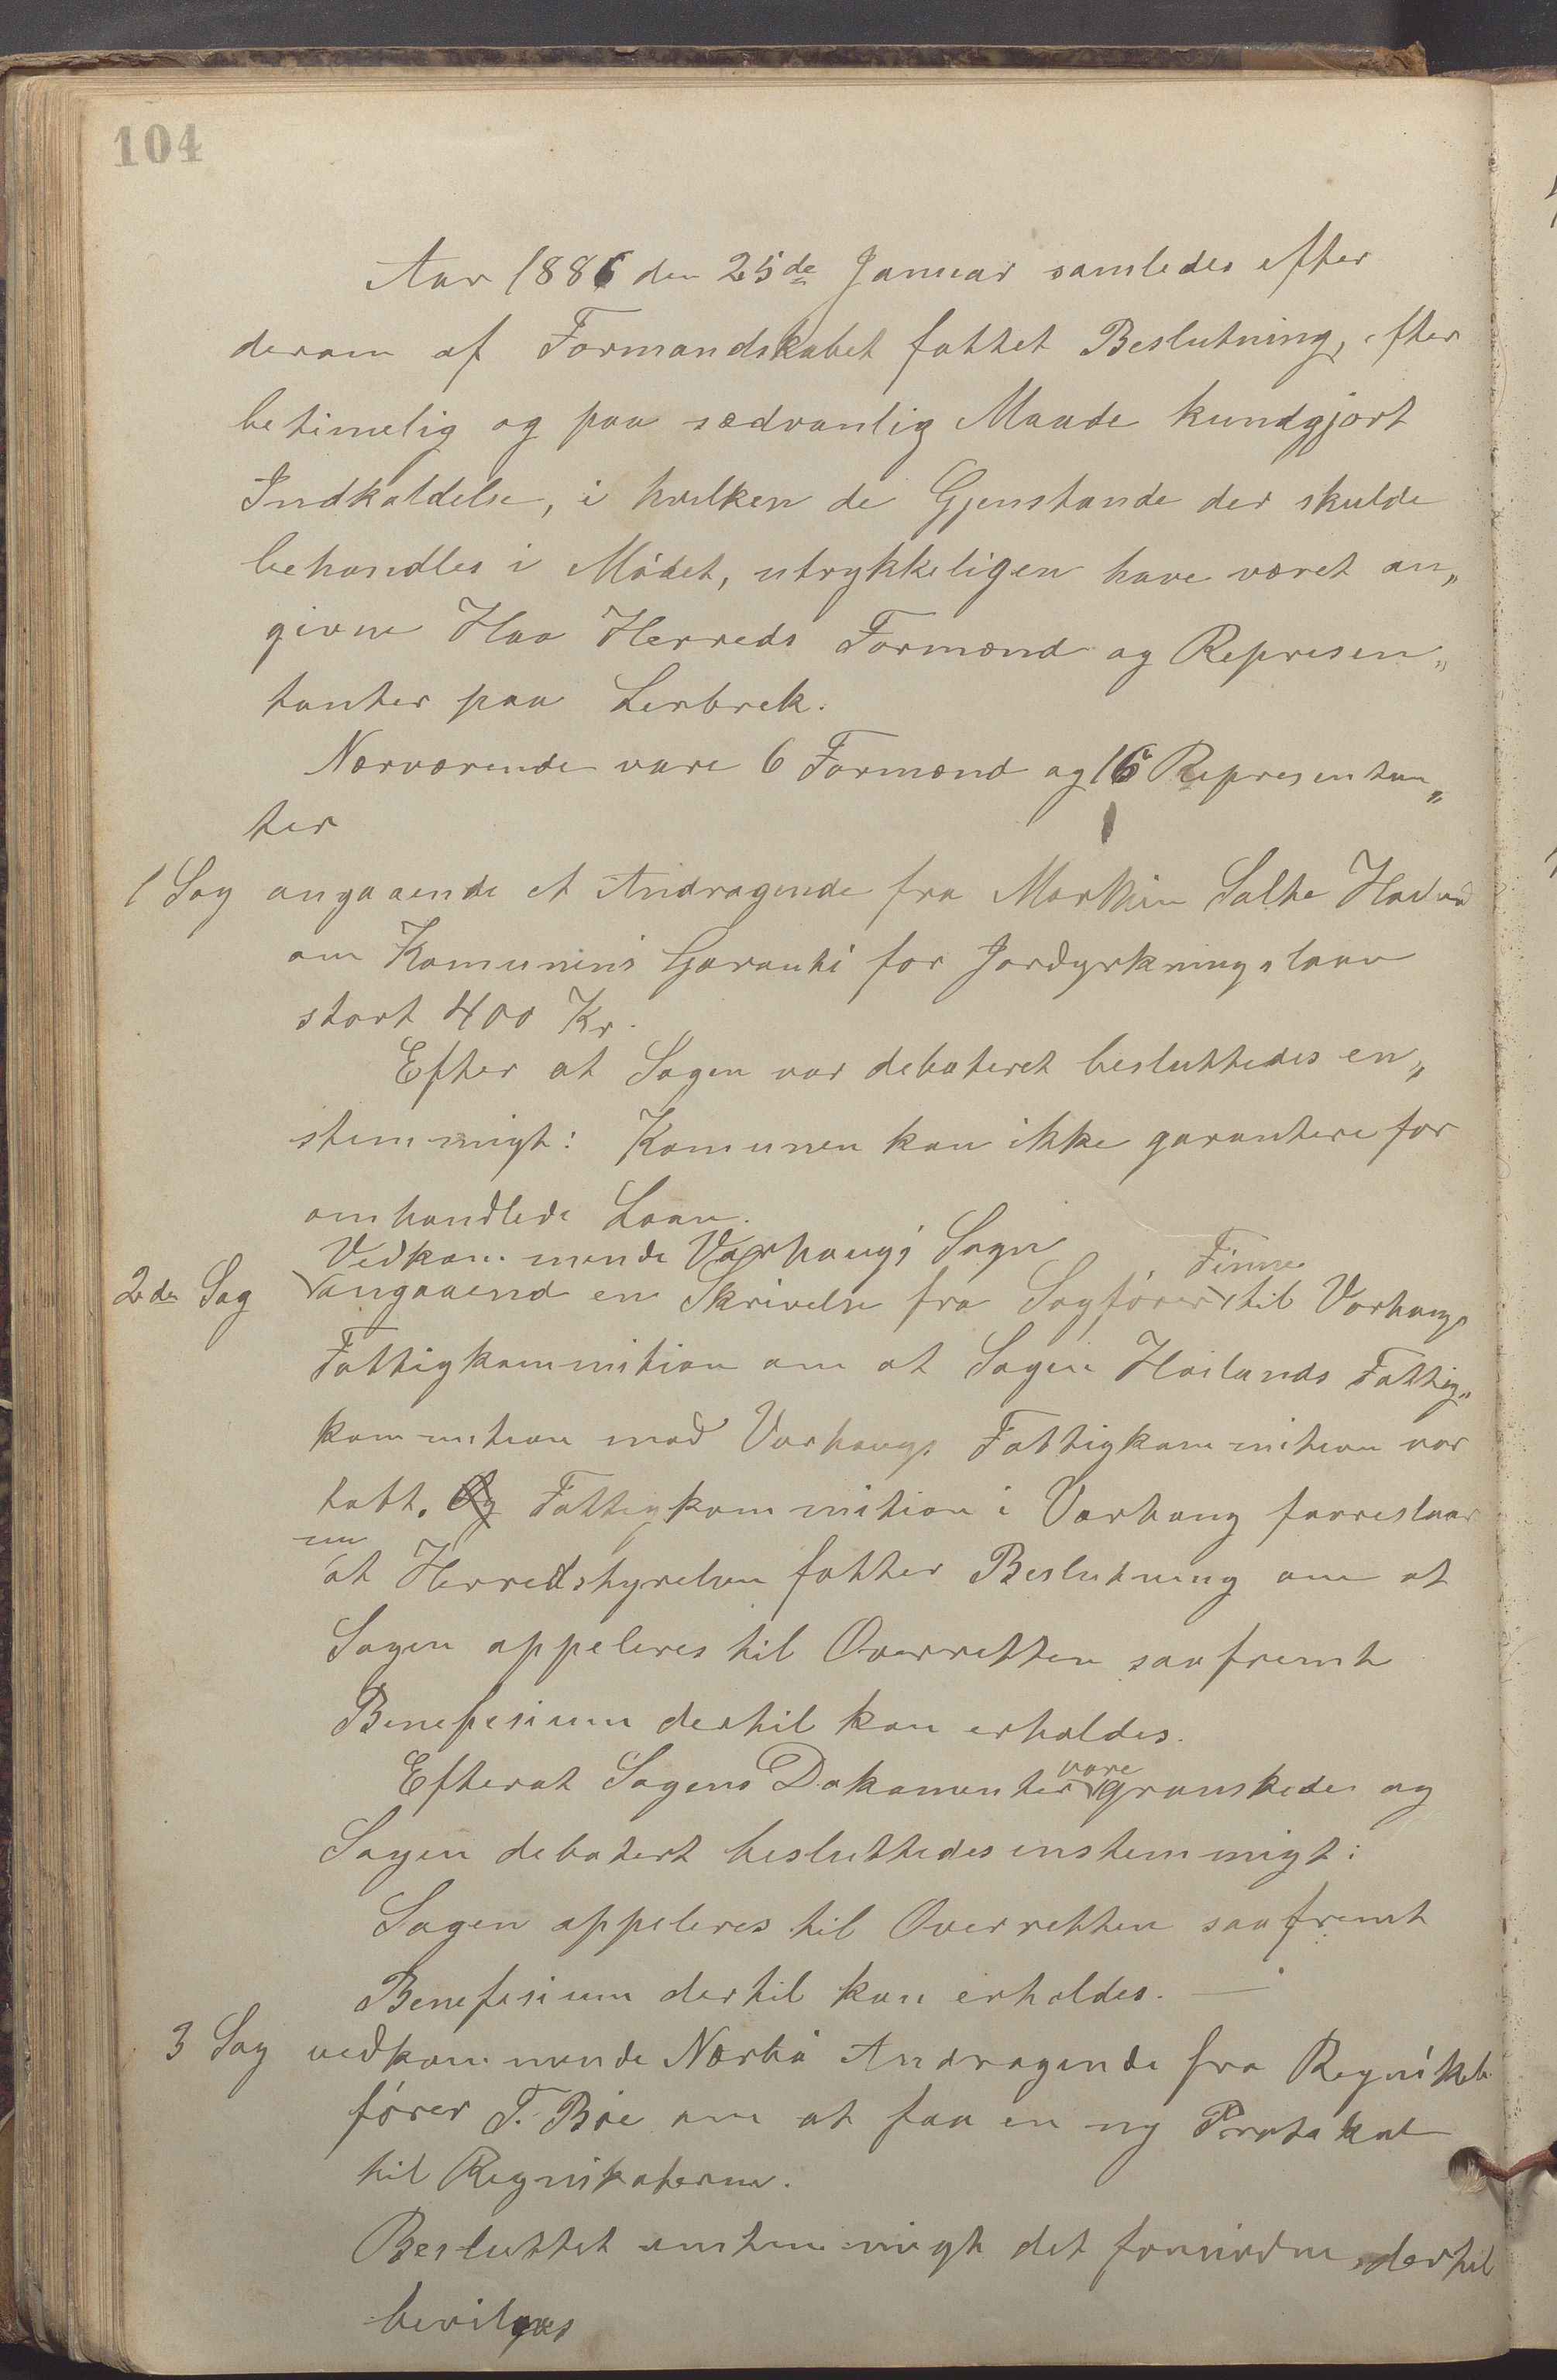 104
Aar 1886 den 25de Januar samledes efter
derom af Formandskabet fattet Beslutning, efter
betimelig og paa sædvanlig Maade kundgjort
Indkaldelse, i hvilken de Gjenstande der skulde
behandles i Mödet, utrykkeligen have været an„
givne Haa Herreds Formænd og Represen„
tanter paa Lerbrek.
Nærværende vare 6 Formænd og 16 Representan„
ter
1 Sag angaaende et Andragende fra Marthin Salte
om Komunens Garanti for Jordyrkningslaan
stort 400 Kr.
Efter at Sagen var debateret besluttedes en„
stemmigt: Komunen kan ikke garantere for
omhandlede Laan.
Vedkommende Varhaugs Sogn
2den Sag angaaend en Skrivelse fra Sagförer Finne til Varhaugs
Fattigkommition om at Sagen Höilands Fattig„
kommition mod Varhaugs Fattigkommition var
tabt. Og Fattigkommition i Varhaug forreslaar
nu
at Herredstyrelsen fatter Beslutning om at
Sagen appeleres til Overretten saafremt
Benefisium dertil kan erholdes.
Efterat Sagens Dokumenter vare granskede og
Sagen debatert besluttedes enstemmigt:
Sagen appeleres til Overretten saafremt
Benefisium dertil kan erholdes. —
3 Sag vedkommende Nærbö Andragende fra
förer T. Böe om at faa en ny Protokol
til
Besluttet enstemmigt det fornödne dertil
bevilges